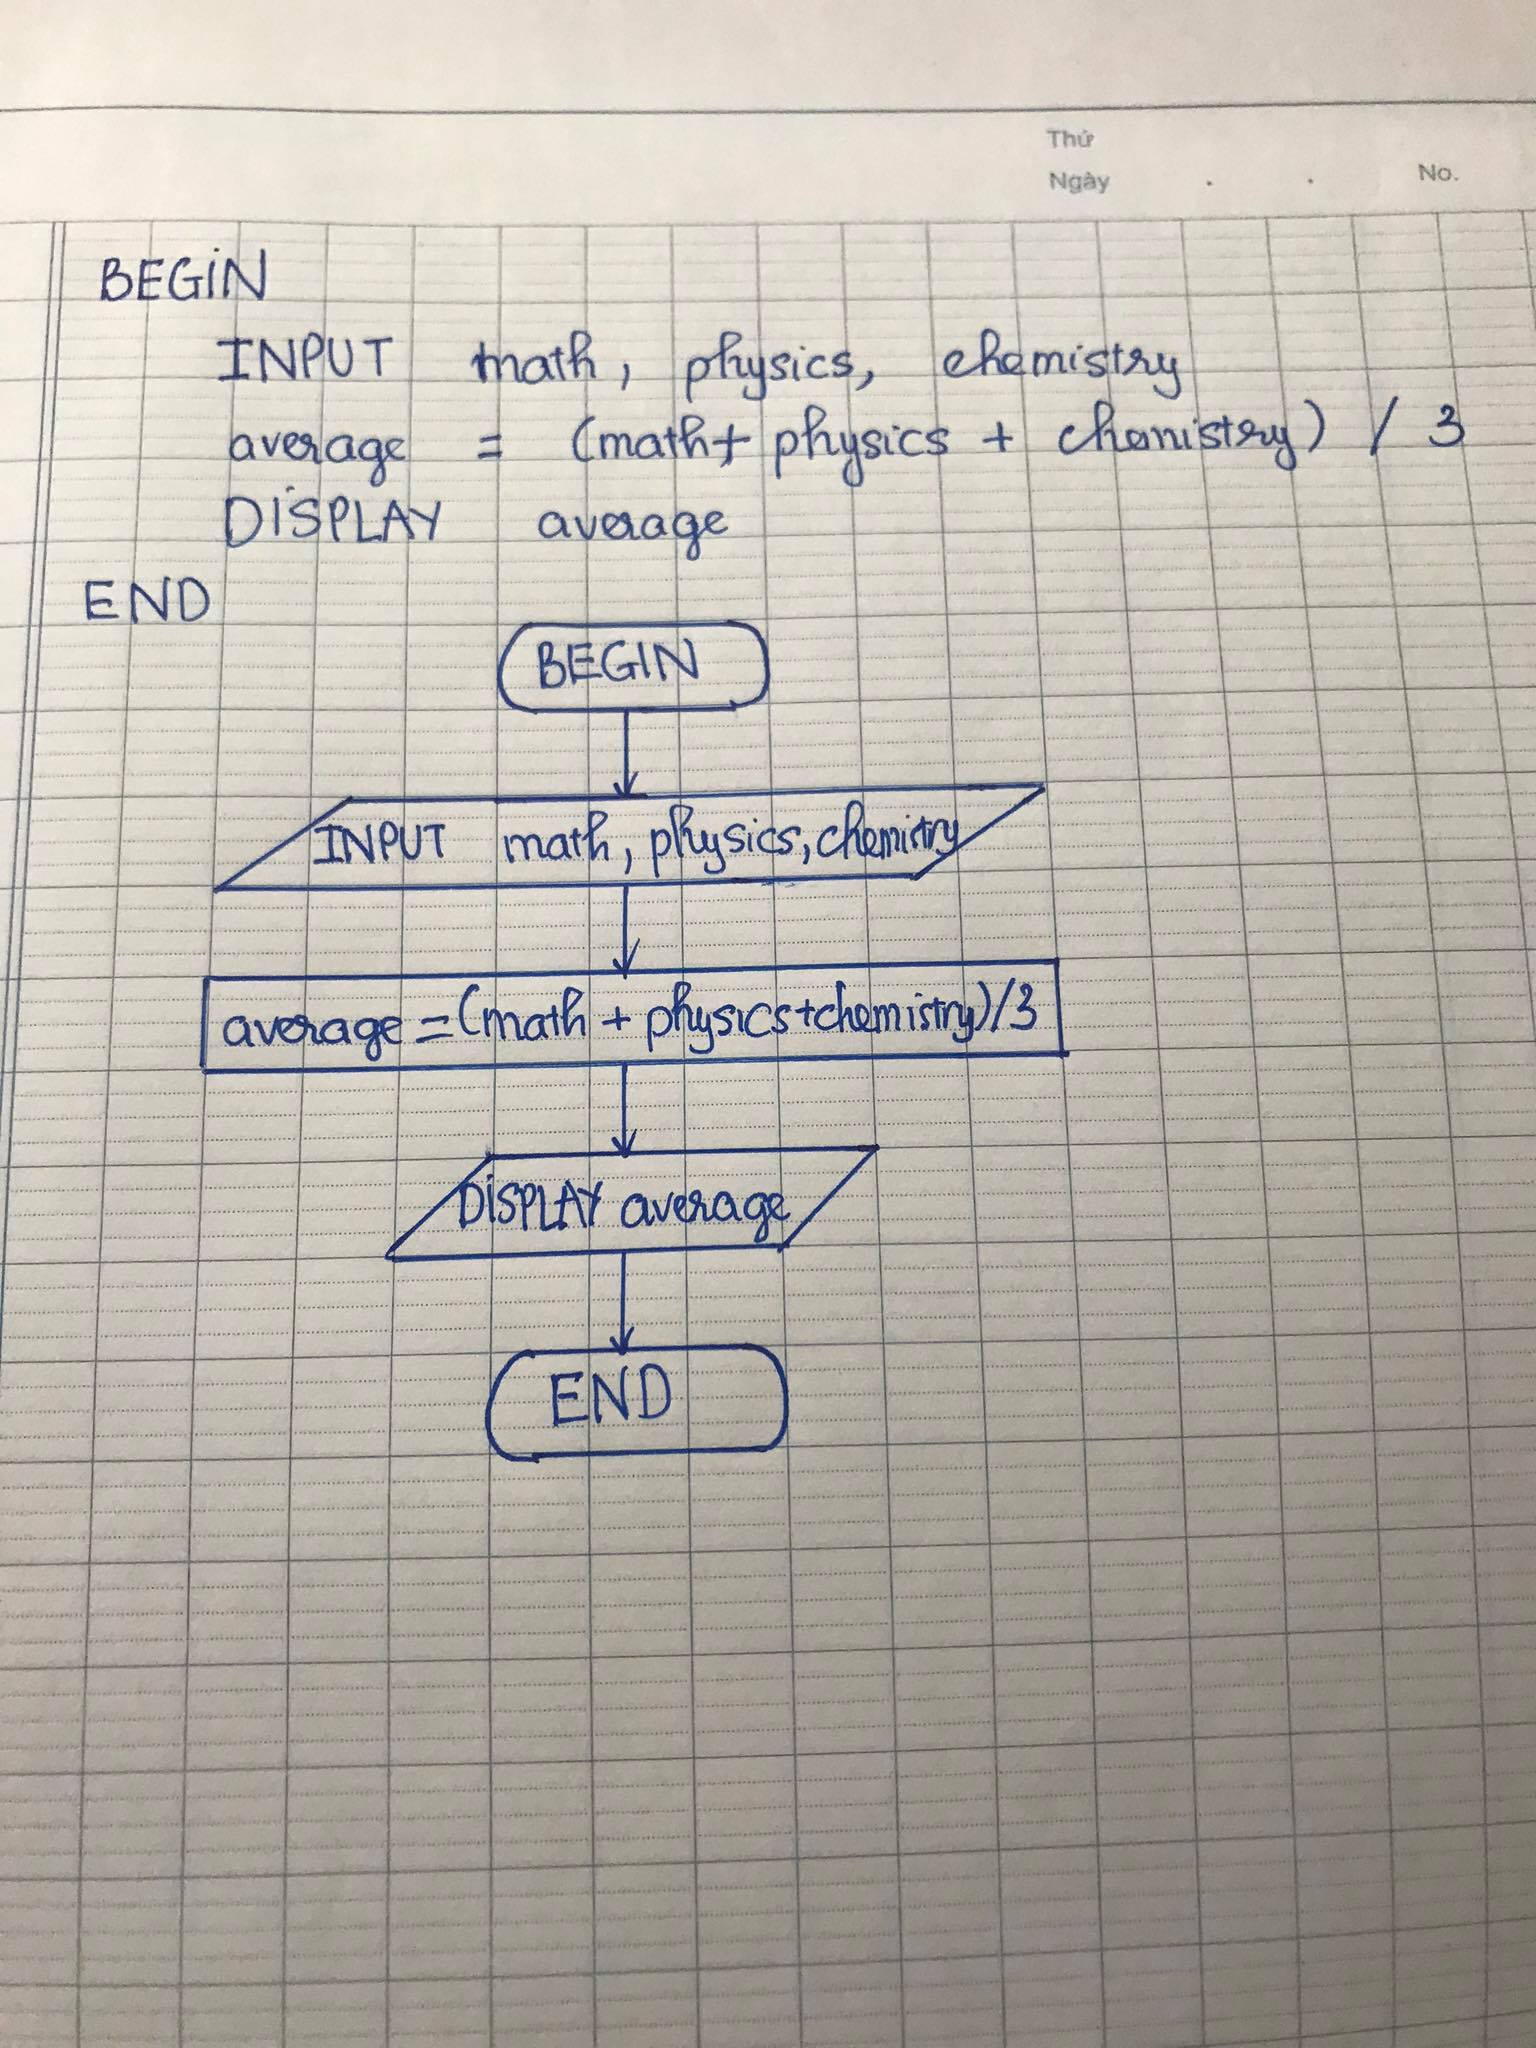 Thứ
Ngày . . No.
BEGIN
INPUT math, physics, chemistry
average = (math+ physics + chemistry) / 3
DISPLAY average
END
BEGIN
INPUT math, physics, chemistry
average = (math + physics+chemistry)/3
DISPLAY average
END